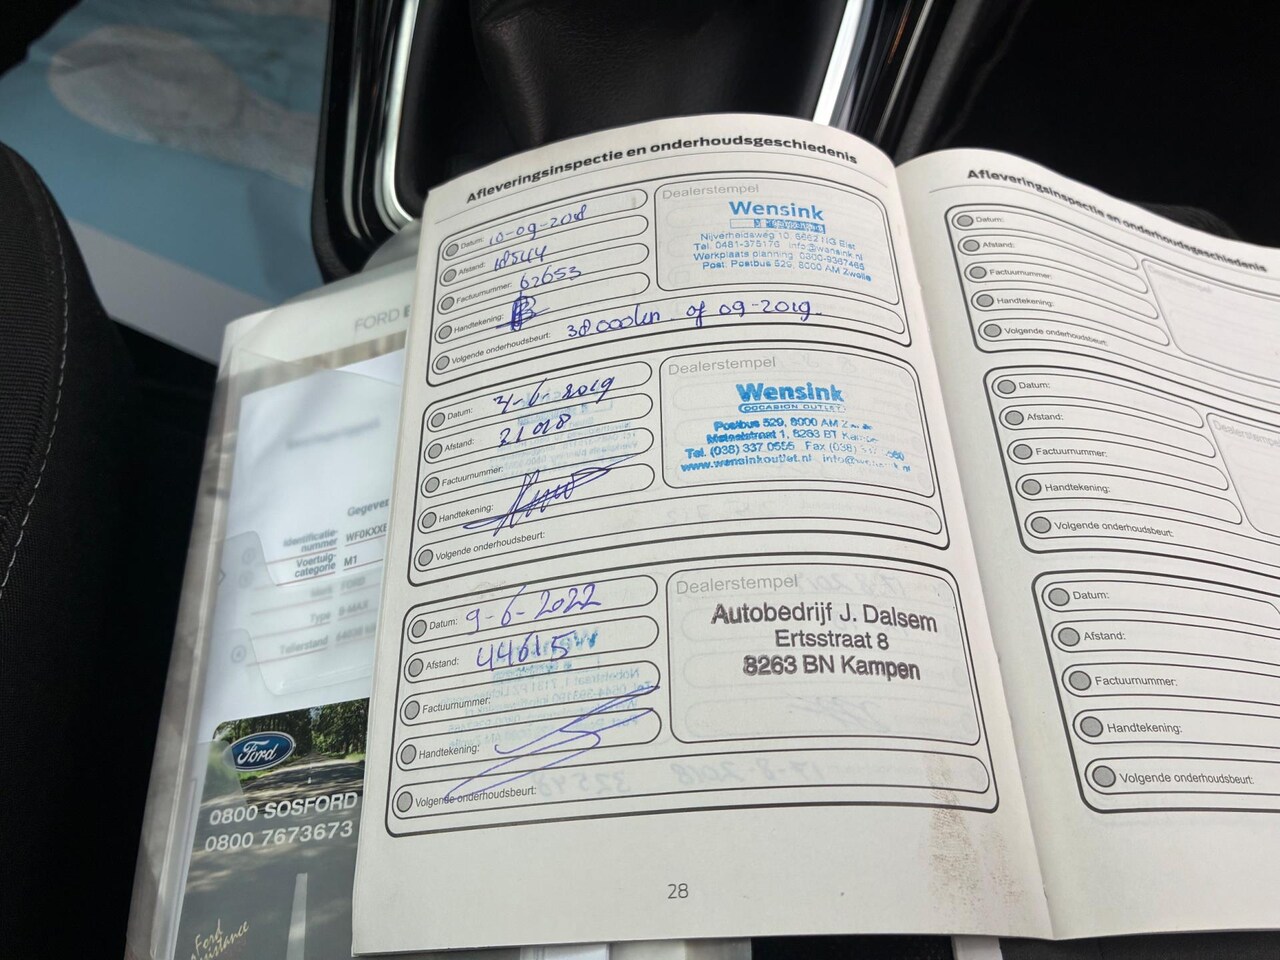 Afleveringsinspectie en onderhoudsgeschiedenis
Datum: 10-09-2018
Afstand: 18544
Factuurnummer: 62653
Handtekening:
Volgende onderhoudsbeurt: 38000km of 09-2019
Dealerstempel
Wensink
Nijverheidsweg 10, 6662 NG Elst
Tel. 0481-375176 info@wensink.nl
Werkplaats planning 0900-9367465
Post: Postbus 529, 8000 AM Zwolle
Datum: -6-2019
Afstand:
Factuurnummer:
Handtekening:
Volgende onderhoudsbeurt:
Dealerstempel
Wensink
OCCASION OUTLET
Postbus 529, 8000 AM
Metaalstraat 1, 8263 BT
Tel. (038) 337 0555 Fax (038)
www.wensinkoutlet.nl
Datum: 9-6-2022
Afstand: 44615
Factuurnummer:
Handtekening:
Volgende onderhoudsbeurt:
Dealerstempel
Autobedrijf J. Dalsem
Ertsstraat 8
8263 BN Kampen
28
Afleveringsinspectie en onderhoudsgeschiedenis
Datum:
Afstand:
Factuurnummer:
Handtekening:
Volgende onderhoudsbeurt:
Datum:
Afstand:
Factuurnummer:
Handtekening:
Volgende onderhoudsbeurt:
Dealerstempel
Datum:
Afstand:
Factuurnummer:
Handtekening:
Volgende onderhoudsbeurt:
FORD
Gegeven
Identificatie-
nummer WF0KXXE
Voertuig-
categorie M1
Merk FORD
Type B-MAX
Tellerstand
Ford
0800 SOSFORD
0800 7673673
Ford